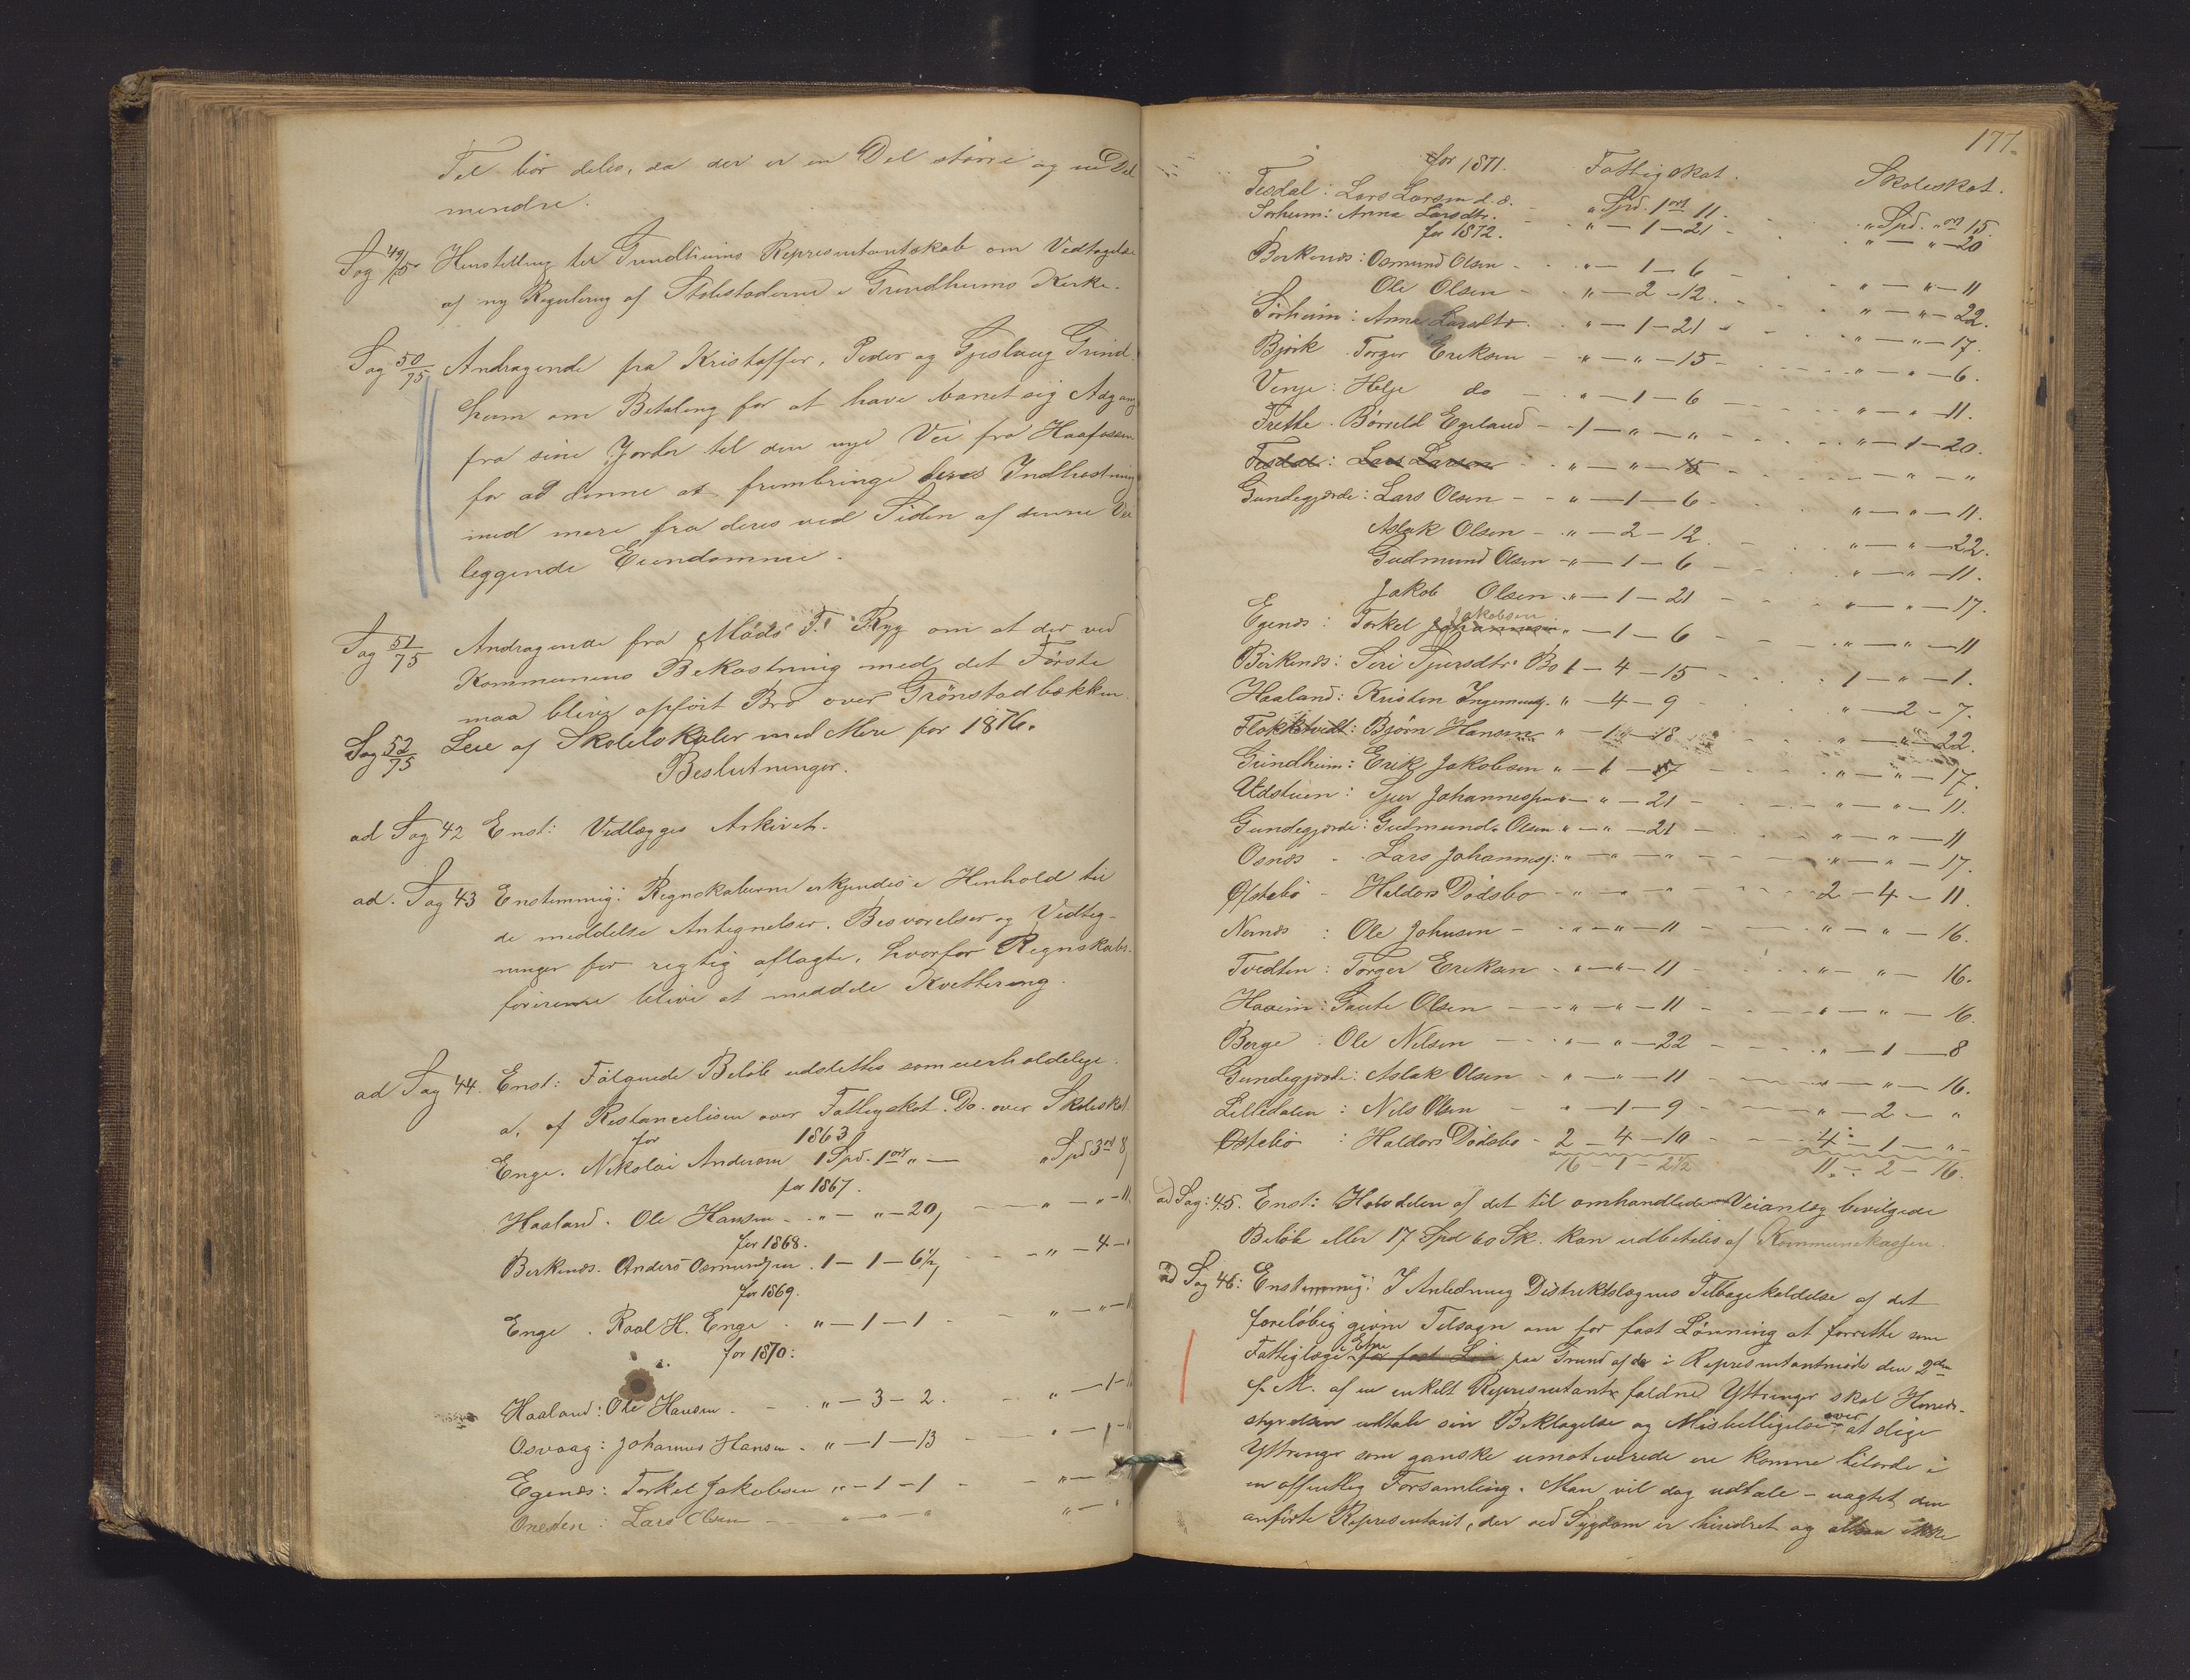 Tel bör deles, da der er en Del större og en Del
mindre.
Sag 49/75 Henstilling til Grindheims Representantskab om Vedtagelse
af ny Regulering af Stolestaderne i Grindheims Kirke.
Sag 50/75 Andragende fra Kristoffer, Peder og Gjeslaug Grind
heim om Betaling for at have banet sig Adgang
fra sine Jorder til den nye Vei fra Haafossen
for ad denne at frembringe deres Indhöstning
med mere fra deres ved Siden af denne Vei
liggende Eiendomme.
Sag 51/75 Andragende fra Mads T. Ryg om at der ved
Kommunens Bekostning med det Förste
maa blive opfört Bro over Grönstadbækken.
Sag 52/75 Leie af Skolelokaler med Mere for 1876.
Beslutninger.
ad Sag 42 Enst: Vedlægges Arkivet.
ad. Sag 43 Enstemmig: Regnskaberne erkjendes i Henhold til
de meddelte Antegnelser, Besvarelser og Vedteg-
ninger for rigtig aflagte, hvorfor Regnskabs-
förerne blive at meddele Kvittering.
ad Sag 44. Enst: Fölgende Belöb udslettes som uerholdelige
a, af Restancelisten over Fattigskat. Do. over Skoleskat
for 1863
Enge. Nikolai Andersen 1 Spd. 1 ort „ — „ Spd 3 ort 8,
for 1867.
Haaland. Ole Hansen - „ — „ — 20, — „ — „ — 11
for 1868.
Berkenes. Anders Osmundsen. 1 — 1 — 6½, - „ — 4 — „
for 1869.
Enge. Roal H. Enge. „ — 1 — 1 - „ — „ — 11
for 1870:
Haaland: Ole Hansen. - „ — 3 — 2. - „ — 1 —
Osvaag: Johannes Hansen - „ — 1 — 13 - „ — 1 —
Egenes: Torkel Jakobsen „ — 1 — 1 - „ —
Lars Olsen — „ — „ — „ „ —
177.
for 1871. Fattigskat. Skoleskat.
Tesdal: Lars Larsen d. æ. - „ Spd. 1 ort 11. - „ Spd. „ ort 15.
Sörheim: Anna Larsdtr. - „ — 1 — 21 - „ — „ — 20
for 1872.
Berkenes: Osmund Olsen - „ — 1 — 6 - „ — „ — 11
Ole Olsen - „ — 2 — 12. - „ — „ — 22.
Sörheim: Anna Larsdtr. „ — 1 — 21 - „ — „ — 17.
Björk. Torger Eriksen - „ — „ — 15 - „ — „ — 6.
Venje: Helje do - „ — 1 — 6 - „ — „ — 11.
Trette. Börreld Egeland - 1 — „ — „ - „ — 1 — 20.
Tesdal: Lars Larsen - „ — „ — 15 - „ — „
Gundegjerde: Lars Olsen - „ — 1 — 6 - „ — „ — 11.
Aslak Olsen - „ — 2 — 12. - „ — „ — 22.
Gudmund Olsen - „ — 1 — 6 - „ — „ — 11.
Jakob Olsen „ — 1 — 21 - „ — „ — 17.
Egenes: Torkel Johannesen Jakobsen „ — 1 — 6 - „ — „ — 11
Birkenes: Siri Sjursdtr. Bo 1 — 4 — 15 - 1 — „ — 1.
Haaland: Kristen Ingemundsen. „ — 4 — 9 - „ — 2 — 7.
Flokketvedt: Björn Hansen „ — 1 — 18 - „ — „ — 22.
Grindheim: Erik Jakobsen „ — 1 — 17 - „ — „ — 17.
Udstuen: Sjur Johannessen — „ — 21 - „ — „ — 11.
Gundegjerde: Gudmund Olsen „ — „ — 21 - „ — „ — 11
Osnes. Lars Johanness: „ — „ — „ - „ — „ — 17.
Ofstebö - Haldors Dödsbo - „ — „ — „ - 2 — 4 — 11.
Nernes: Ole Johnsen - „ — „ — 11 - „ — „ — 16.
Tvedten: Torger Eriksen - „ — „ — 11 - „ — „ — 16.
Haaeim: Gaute Olsen - „ — „ — 11 - „ — „ — 16.
Berge: Ole Nelsen - „ — „ — 22 - „ — 1 — 8
Gundegjerde: Aslak Olsen - „ — „ — 11 - „ — „ — 16.
Lilledalen: Nils Olsen - „ — 1 — 9 - „ — 2 — „
Östebö: Haldors Dödsbo - 2 — 4 — 10 - 4 — 1 — „
16 - 1 - 2½ 11 - 2 - 16.
ad Sag: 45. Enst: Halvdelen af det til omhandlede Veianlæg bevilgede
Belöb eller 17 Spd 60 Sk. kan udbetales af Kommunekassen.
ad Sag 46: Enstemmig: I Anledning Distriktslægens Tilbagekaldelse af det
foreløbig givne Tilsagn om for fast Lönning at forrette som
Fattiglæge i Etne for fast Lön paa Grund af de i Representantmöde den 2den
f. M. af en enkelt Representant faldne Yttringer skal Herreds-
styrelsen udtale sin Beklagelse og Misbilligelse over at slige
Yttringer som ganske umotiverede ere komne tilorde i
en offentlig Forsamling. Man vil dog udtale - uagtet den
anförte Representant, der ved Sygdom er hindret og altsaa ikke